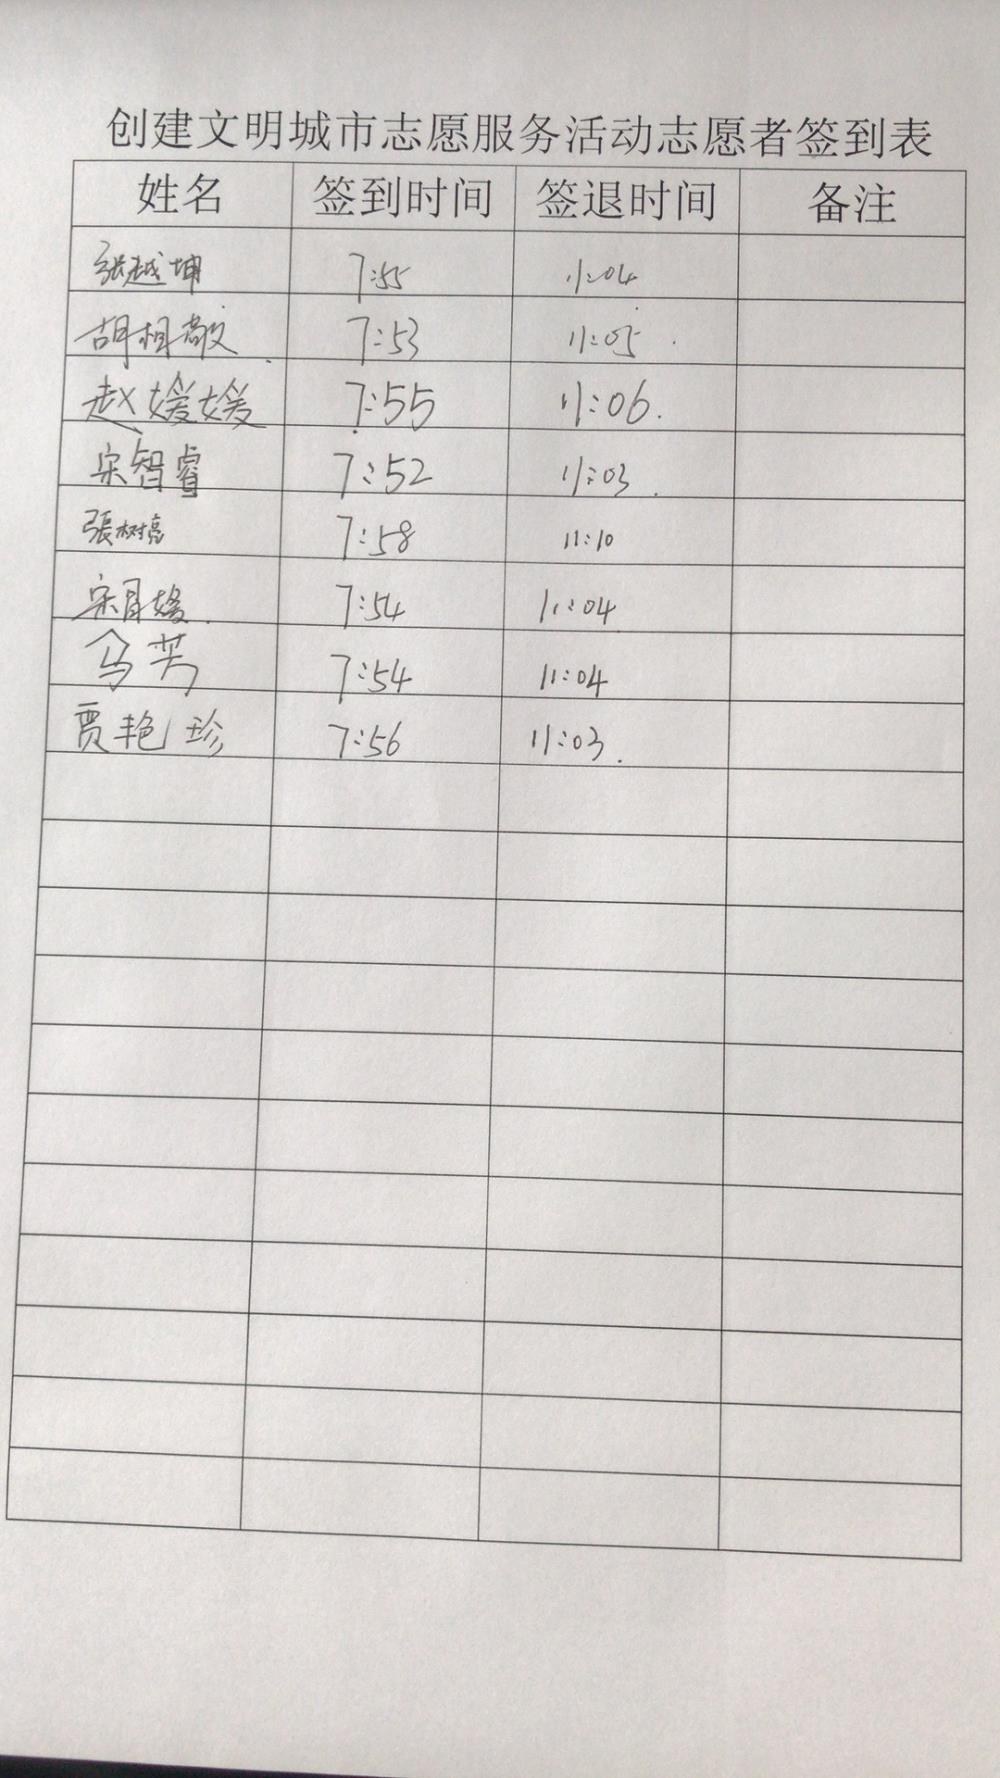 创建文明城市志愿服务活动志愿者签到表
姓名 签到时间 签退时间 备注
张越坤 7:55 11:04
胡相敬 7:53 11:05
赵媛媛 7:55 11:06
宋智睿 7:52 11:03
張树亮 7:58 11:10
宋月媛 7:54 11:04
芳 7:54 11:04
贾艳珍 7:56 11:03